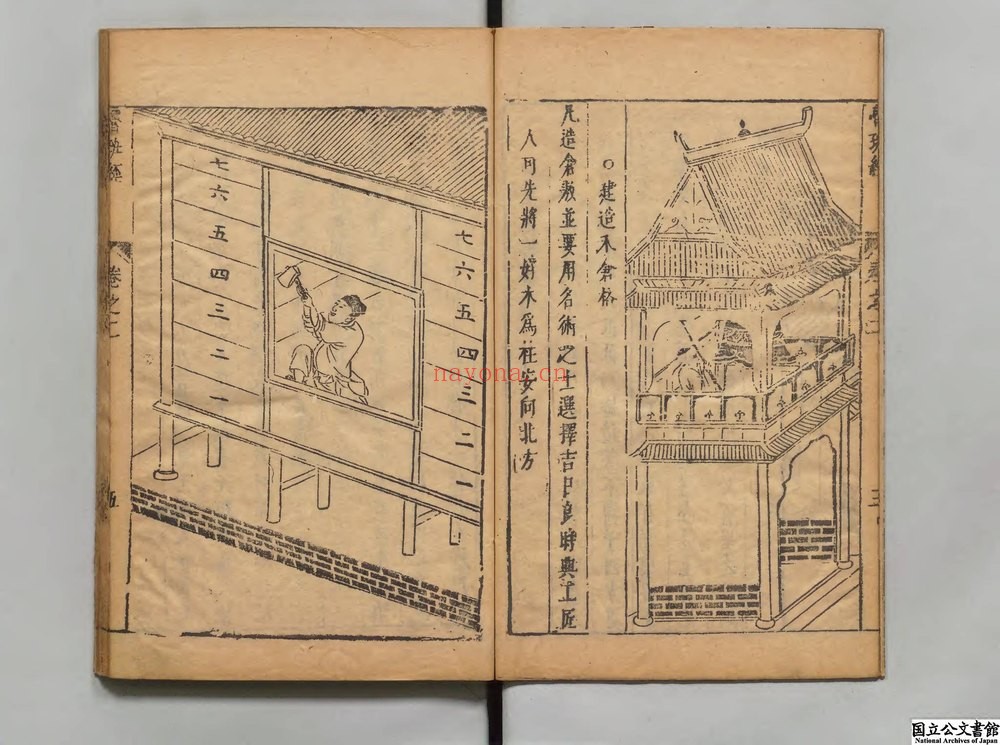 ○建造禾倉格
凡造倉敖並要用名術之士選擇吉日良時興工匠
人可先將一好木爲柱安向北方
七
六
五
四
三
二
一
七
六
五
四
三
二
一
魯班經
卷之二
五
nayona.cn
国立公文書館
National Archives of Japan